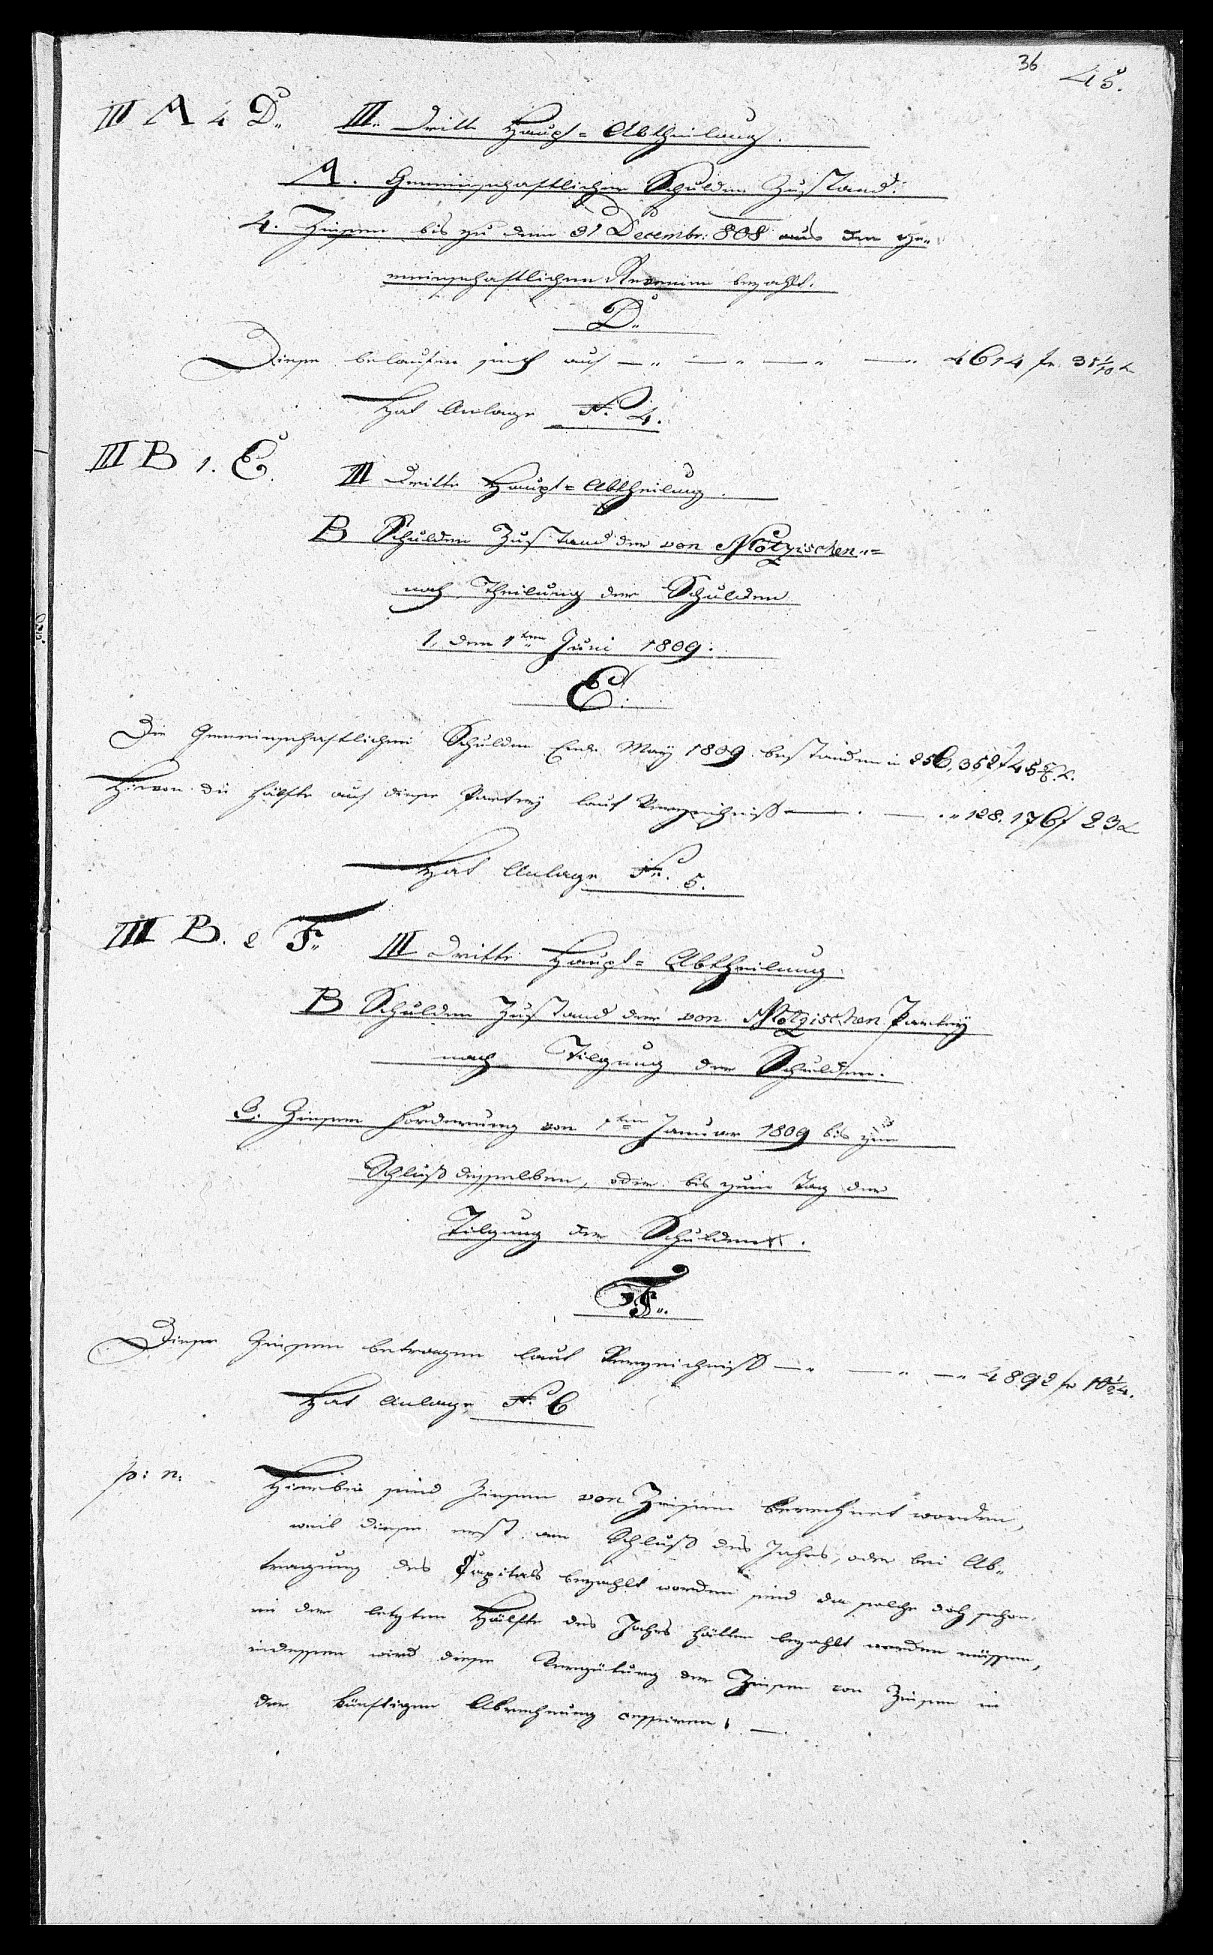 36 45.
III A 4 D. III. Dritte Haupt-Abtheilung.
A. Gemeinschaftlicher Schulden Zustand.
4. Zinsen bis zu dem 31 Decembr: 808 aus der ge-
meinschaftlichen bezahlt.
D.
Diese belaufen sich auf 4614 fr.
Hat Anlage N. 4.
III B 1. E.
III Dritte Haupt-Abtheilung.
B Schulden Zustand der von
nach Theilung der Schulden
1. den 1ten Juni 1809.
E.
Die Gemeinschaftlichen Schulden Ende May 1809 bestanden in 256,352 f 45
Hievon die Hälfte auf diese Partey laut Verzeichniß 128.176 f 23
Hat Anlage N. 5.
III B. 2 F.
III Dritte Haupt-Abtheilung.
B Schulden Zustand der von Partey
nach Tilgung der Schulden.
2. Zinsen Forderung von 1ten Januar 1809 bis zum
Schluß desselben, oder bis zum Tag der
Tilgung der Schulden.
F.
Diese Zinsen betragen laut Verzeichniß 4892 fr
Hat Anlage N. 6
p: n: Hierbei sind Zinsen von Zinsen berechnet worden,
weil diese erst am Schluß des Jahrs, oder bei Ab-
tragung des Capitals bezahlt worden sind da solche doch schon
in der letzten Hälfte des Jahrs hätten bezahlt werden müssen,
indessen wird diese Vergütung der Zinsen von Zinsen in
der künftigen Abrechnung cessiren.